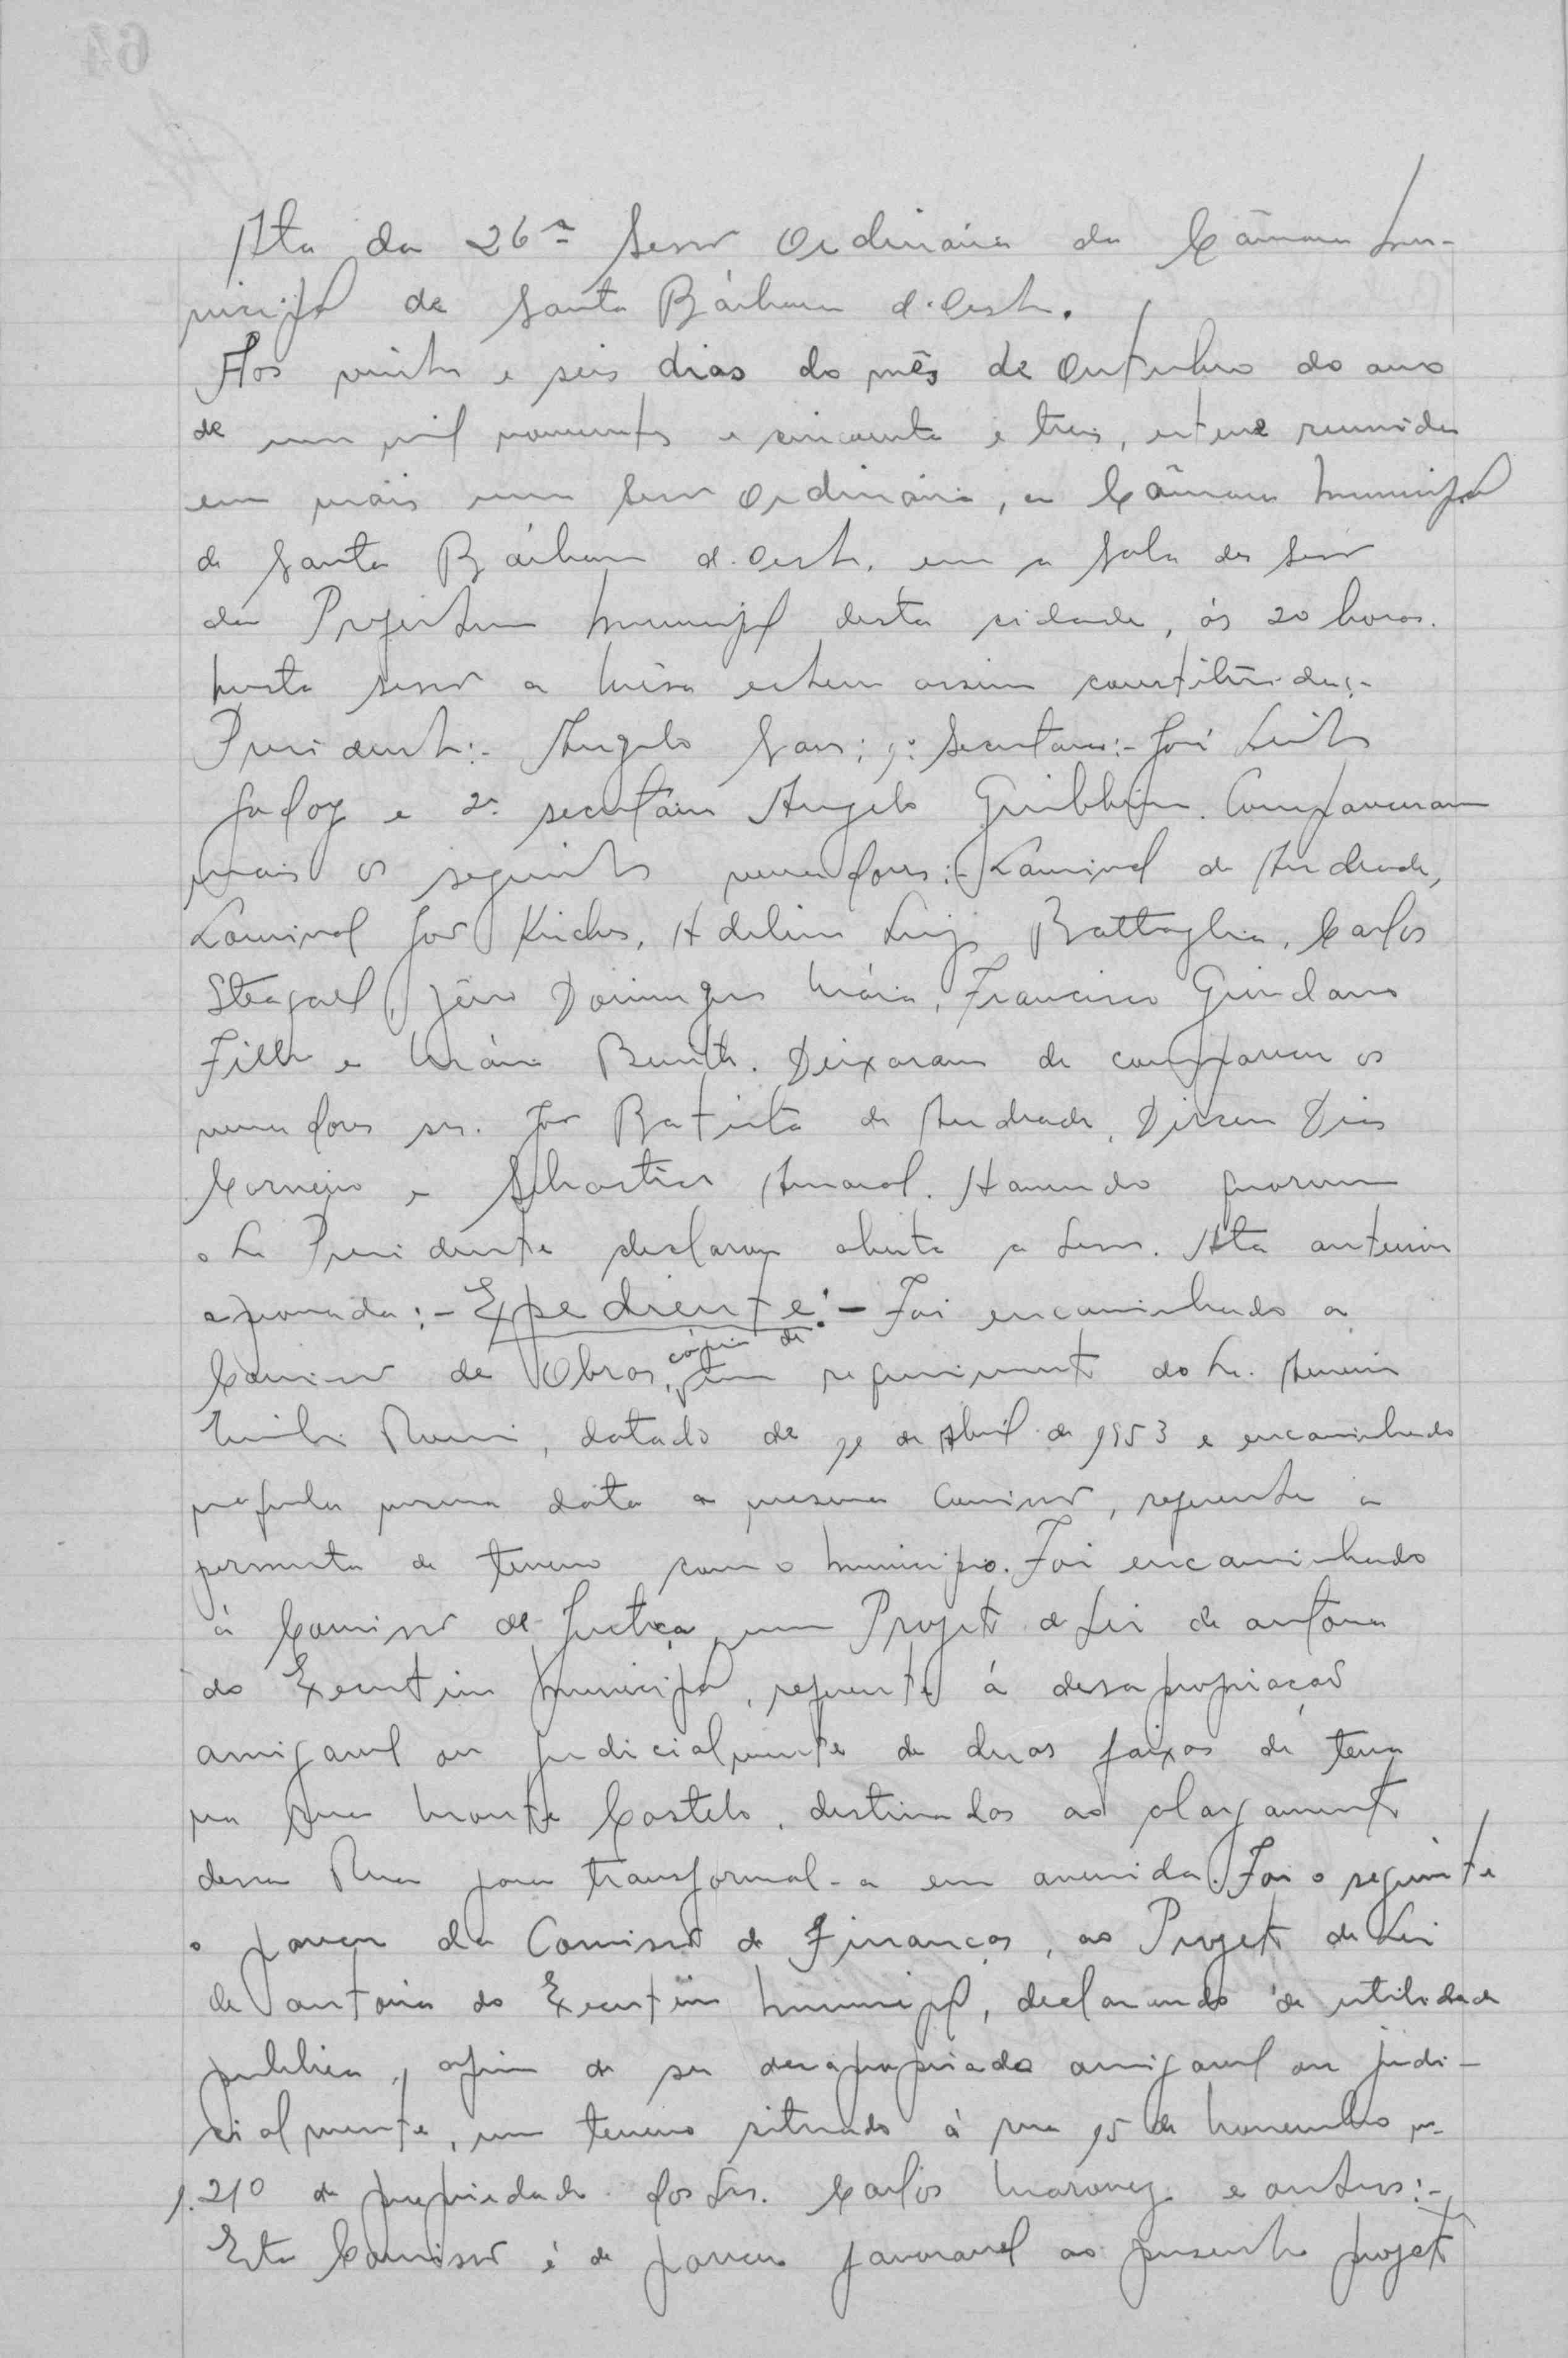 Ata da 26ª Sessão Ordinária da Câmara Mu-
nicipal de Santa Bárbara d'Oeste.
Aos vinte e seis dias do mês de Outubro do ano
de um mil novecentos e cincoenta e três, esteve reunida
em mais uma Sessão Ordinária, a Câmara Municipal
de Santa Bárbara d'Oeste, em a Sala das Sessões
da Prefeitura Municipal desta cidade, ás 20 horas.
Nesta sessão a Mêsa esteve assim constituida:-
Presidente:- Angelo Sans; 1º Secretario:- José Leite
Godoy e 2º secretário Angelo Giubbina. Compareceram
mais os seguintes vereadores:- Lourival de Andrade,
Lourival José Kirches, Adelino Luiz Battaglia, Carlos
Steagall, Jêno Domingues Mário, Francisco Giordano
Filho e Mário Bento. Deixaram de comparecer os
vereadores srs. José Batista de Andrade, Dirceu Dias
Carneiro e Sebastião Amaral. Havendo quorum
o Sr. Presidente declarou aberta a sessão. Ata anterior
aprovada:- Expediente:- Foi encaminhado a
Comissão de Obras, cópia de um requerimento do Sr. Americo
Emilio Romi, datado de 11 de Abril de 1953 e encaminhado
naquela mesma data a mesma Comissão, referente a
permuta de terreno com o municipio. Foi encaminhado
á Comissão de Justiça, um Projeto de Lei de autoria
do Executivo Municipal, referente á desapropriação
amigavel ou judicialmente de duas faixas de terra
na Rua Monte Castelo, destinadas ao alargamento
dessa Rua para transformal-a em avenida. Foi o seguinte
o parecer da Comissão de Finanças, ao Projeto de Lei
de autoria do Executivo Municipal, declarando de utilidade
publica, afim de ser desapropriado amigavel ou judi-
cialmente, um terreno situado á rua 15 de Novembro nº
1.210 de propriedade dos Srs. Carlos e outros:-
Esta Comissão é de parecer favoravel ao presente projeto